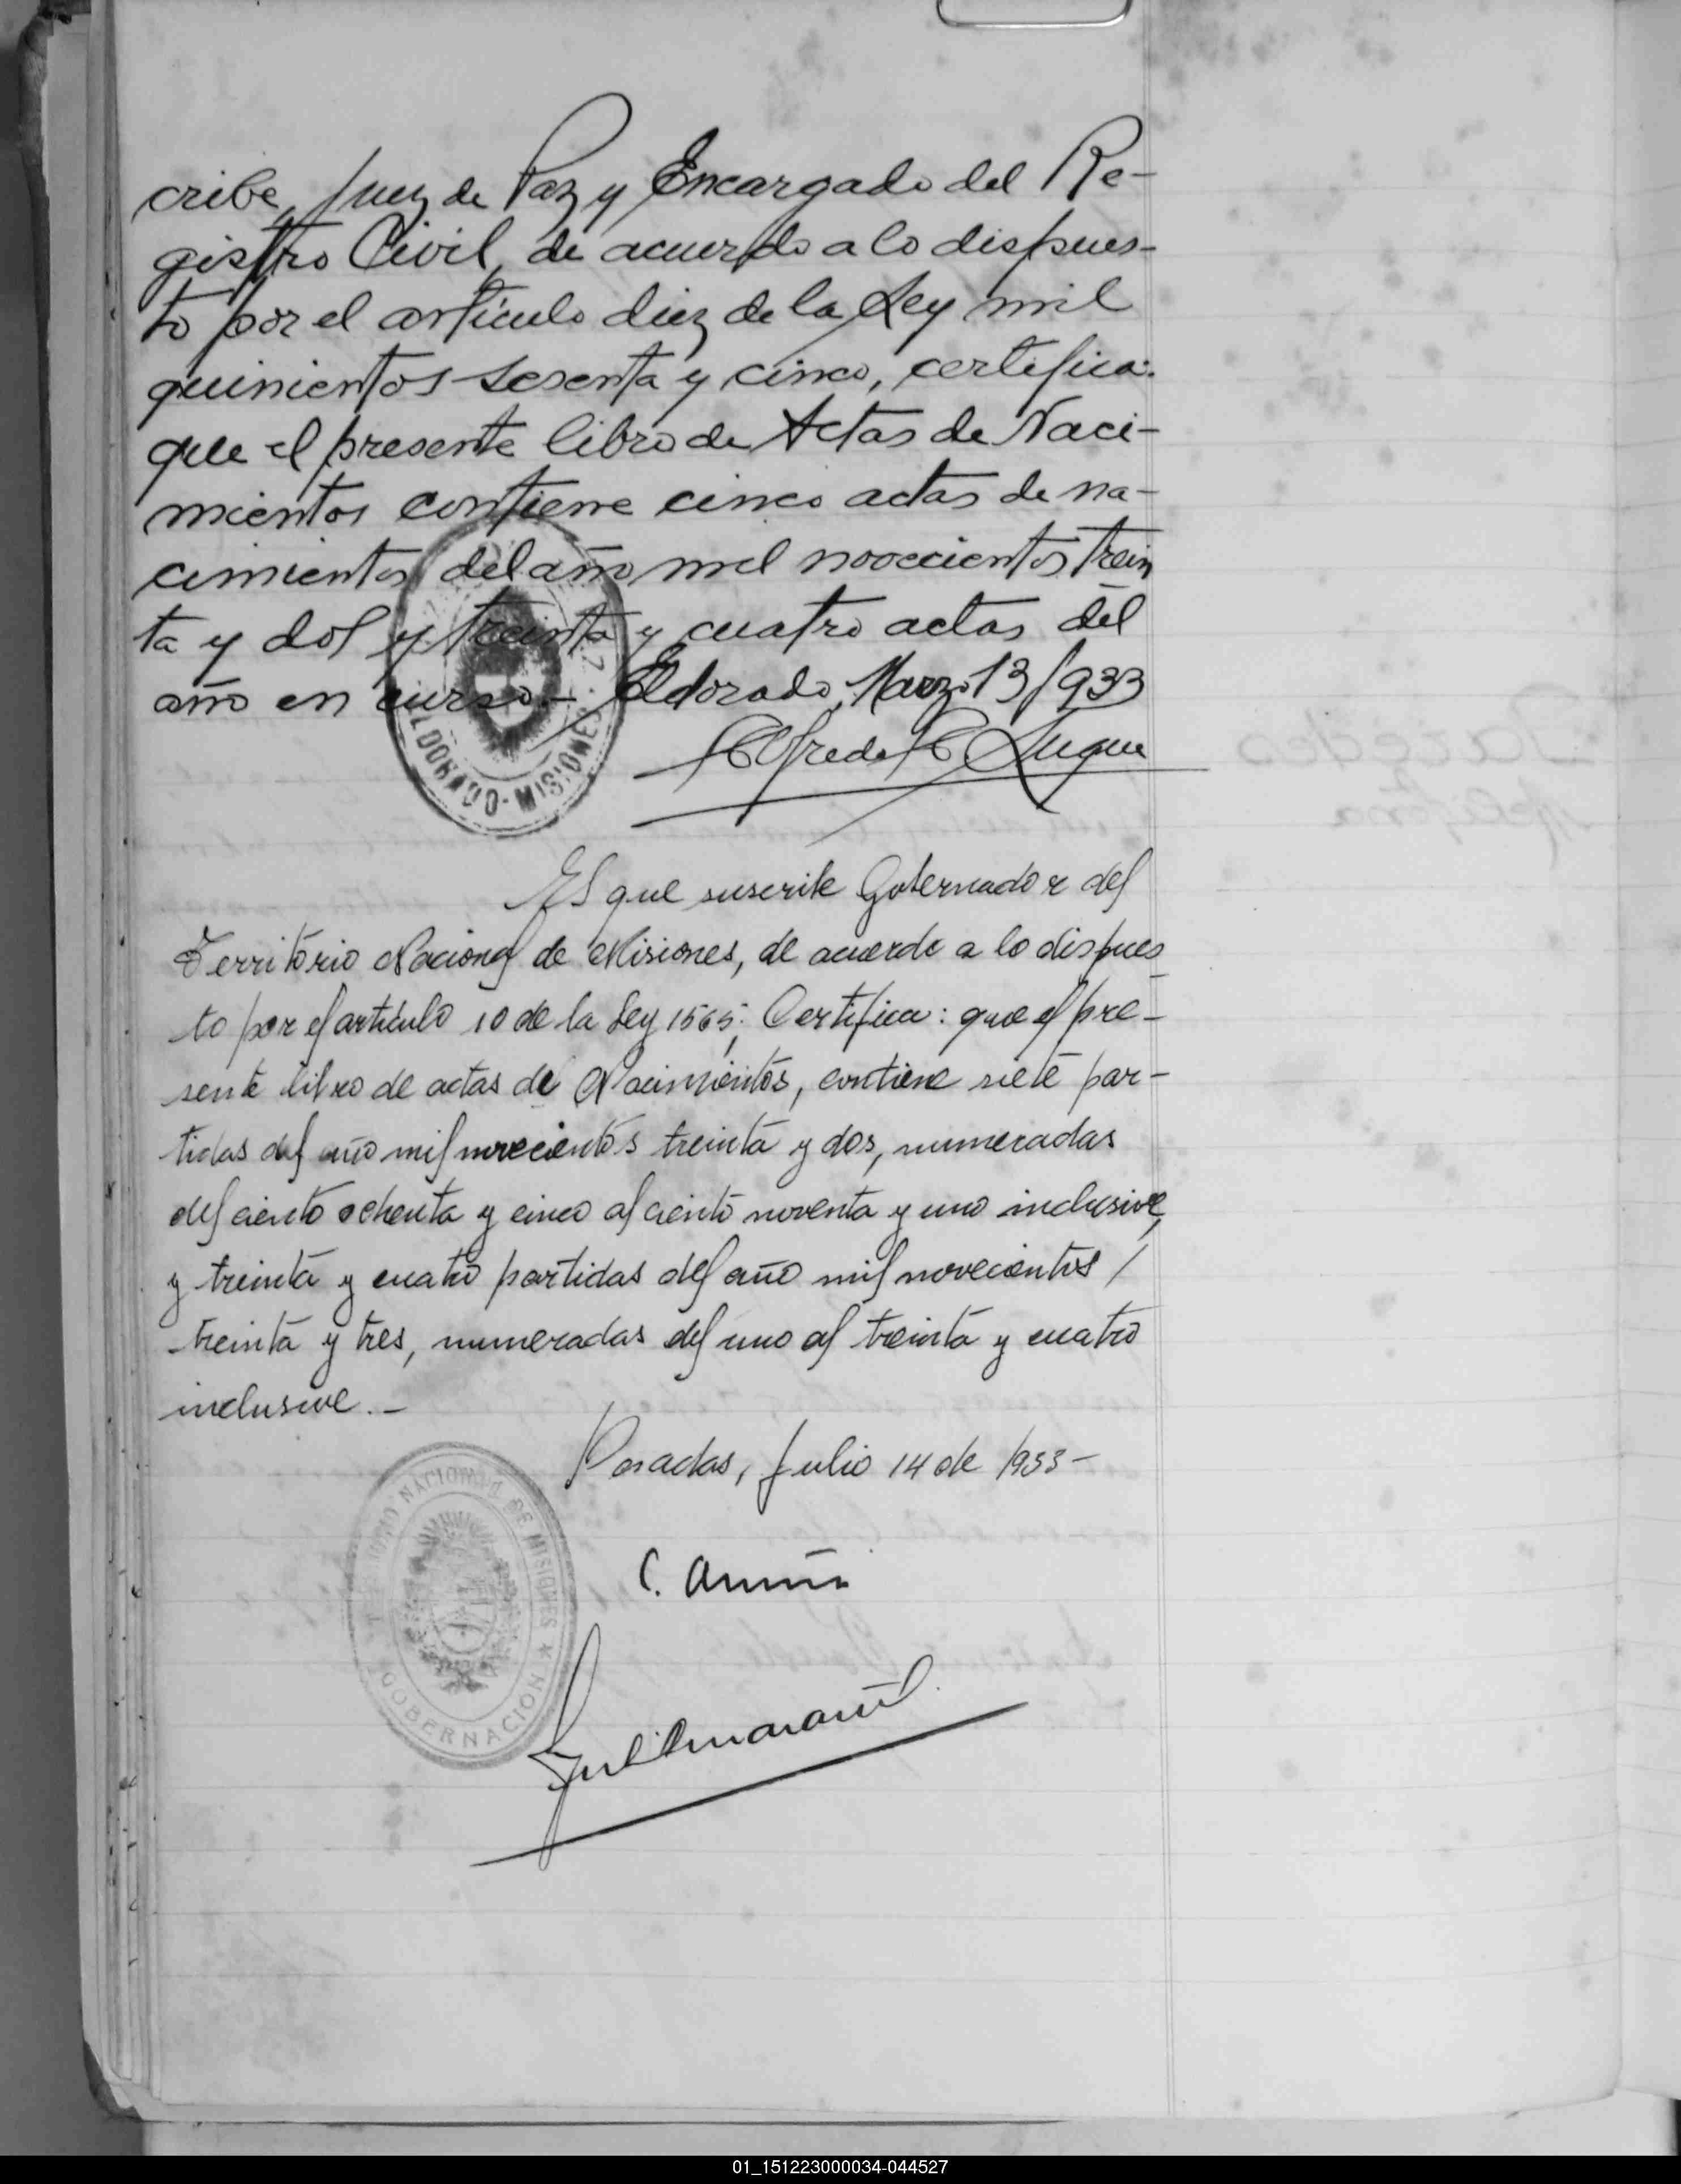 cribe, Juez de Paz y Encargado del Re-
gistro Civil, de acuerdo a lo dispues-
to por el artículo diez de la Ley mil
quinientos sesenta y cinco, certifica:
que el presente libro de Actas de Naci-
mientos contiene cinco actas de na-
cimientos del año mil novecientos trein
ta y dos y treinta y cuatro actas del
año en curso.- Eldorado, Marzo 13/933
Alfredo C. Luque
ELDORADO-MISIONES
El que suscribe Gobernador del
Territorio Nacional de Misiones, de acuerdo a lo dispues
to por el artículo 10 de la Ley 1565; Certifica: que el pre-
sente libro de actas de Nacimientos, contiene siete par-
tidas del año mil novecientos treinta y dos, numeradas
del ciento ochenta y cinco al ciento noventa y uno inclusive,
y treinta y cuatro partidas del año mil novecientos /
treinta y tres, numeradas del uno al treinta y cuatro
inclusive.-
Posadas, Julio 14 de 1933-
TERRITORIO NACIONAL DE MISIONES
GOBERNACION
C.
01_151223000034-044527